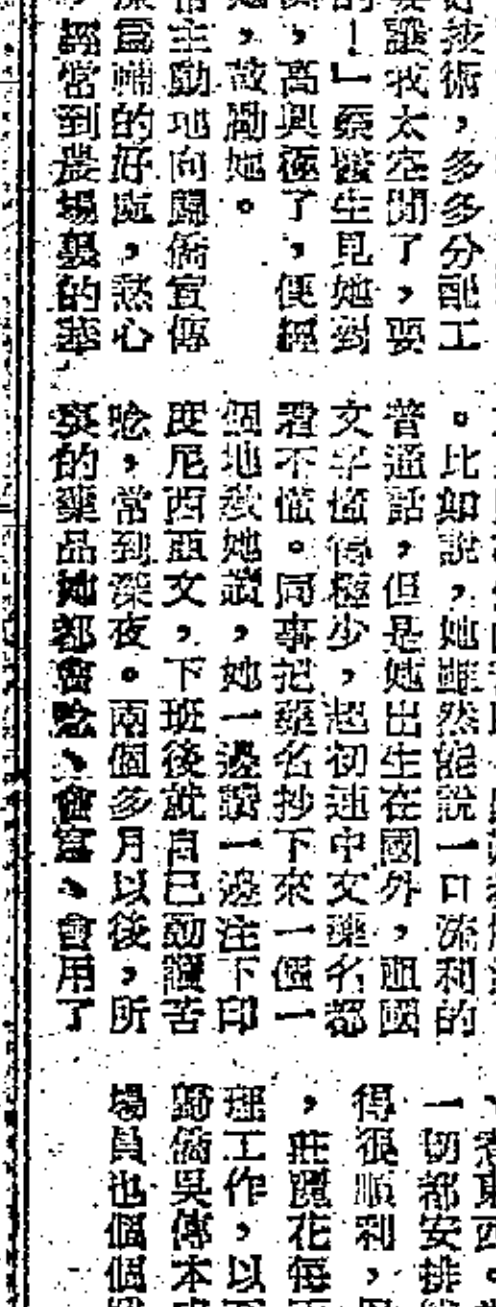 好技術，多多分配工
我太空閒了，要
的！」蔡發生見她對
，高興極了，便經
她，鼓勵她。
常主動地向歸僑宣傳
的好處，熱心
經常到農場裏的華
。比如說，她雖然能說一口流利的
普通話，但是她出生在國外，祖國
文字懂得極少，起初連中文藥名都
看不懂。同事把藥名抄下來一個一
個地教她讀，她一邊讀一邊注下印
度尼西亞文，下班後就自己勤讀苦
唸，常到深夜。兩個多月以後，所
有的藥品她都會唸、會寫、會用了
看東西。
一切都安排
得很順利，
，莊麗花每
理工作，以
歸僑吳傳本
場員也個個